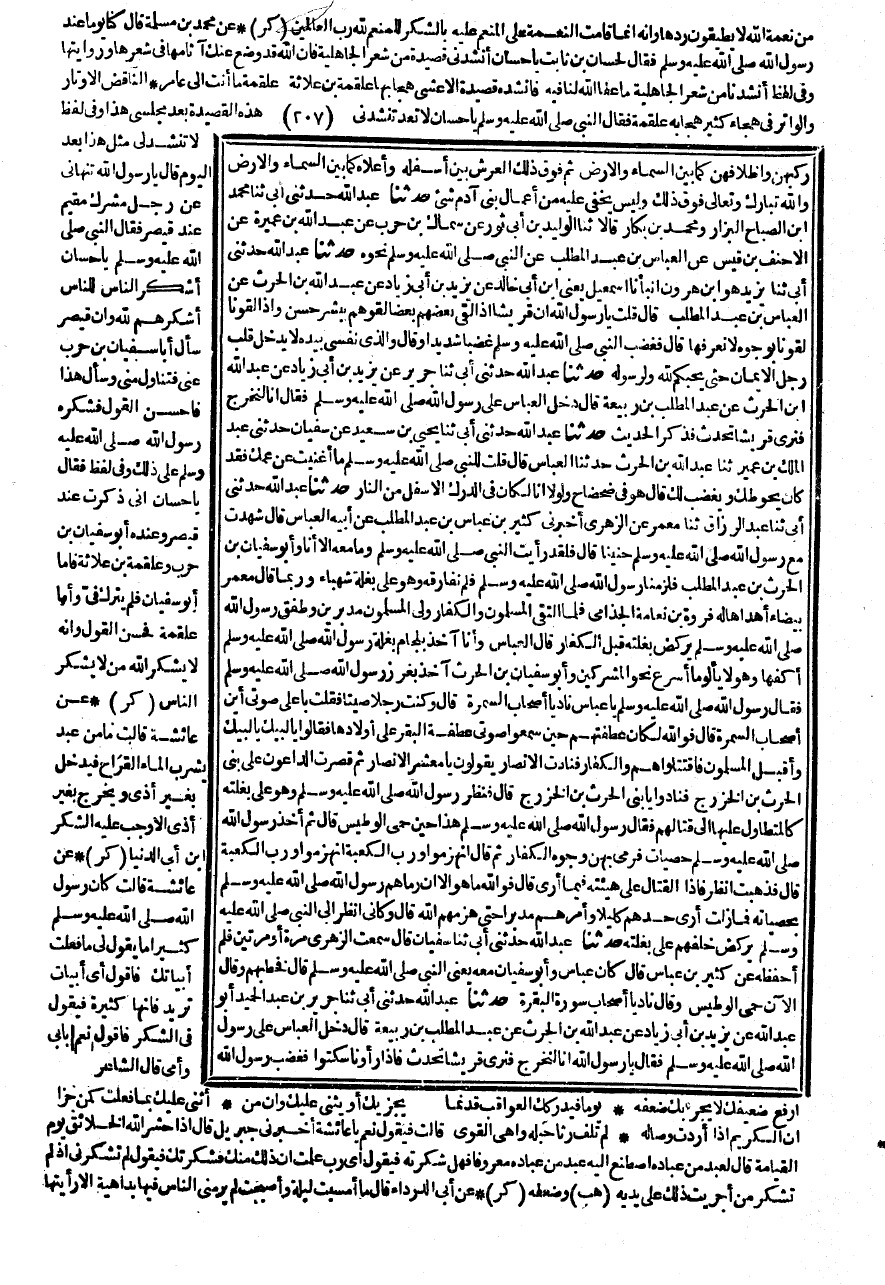 من نعمة الله لا يطيقون ردها وانه انما قامت النعمة على المنعم عليه بالشكر للمنعم لله رب العالمين (كر) * عن محمد بن مسلمة قال كنا يوما عند
رسول الله صلى الله عليه وسلم فقال لحسان بن ثابت يا حسان أنشدنى قصيدة من شعر الجاهلية فان الله قد وضع عنك آثامها فى شعرها وروايتها
وفى لفظ أنشدنا من شعر الجاهلية ما عفا الله لنا فيه فانشده قصيدة الاعشى هجا بها علقمة بن علاثة علقمة ما أنت الى عامر * الناقض الاوتار
والواتر فى هجاء كثير هجا به علقمة فقال النبى صلى الله عليه وسلم يا حسان لا تعد تنشدنى (٢٠٧) هذه القصيدة بعد مجلسى هذا وفى لفظ
لا تنشدلى مثل هذا بعد
اليوم قال يا رسول الله تنهانى
عن رجل مشرك مقيم
عند قيصر فقال النبى صلى
الله عليه وسلم يا حسان
أشكر الناس للناس
أشكرهم لله وان قيصر
سأل أبا سفيان بن حرب
عنى فتناول منى وسأل هذا
فاحسن القول فشكره
رسول الله صلى الله عليه
وسلم على ذلك وفى لفظ فقال
يا حسان انى ذكرت عند
قيصر وعنده أبو سفيان بن
حرب وعلقمة بن علاثة فاما
أبو سفيان فلم يترك فى وأما
علقمة فحسن القول وانه
لا يشكر الله من لا يشكر
الناس (كر) * عن
عائشة قالت ما من عبد
يشرب الماء القراح فيدخل
بغير أذى ويخرج بغير
أذى الا وجب عليه الشكر
ابن أبى الدنيا (كر) * عن
عائشة قالت كان رسول
الله صلى الله عليه وسلم
كثيرا ما يقول لى ما فعلت
أبياتك فاقول أى أبيات
تريد فانها كثيرة فيقول
فى الشكر فاقول نعم بابى
وأمى قال الشاعر
ركبهن واظلافهن كما بين السماء والارض ثم فوق ذلك العرش بين أسفله وأعلاه كما بين السماء والارض
والله تبارك وتعالى فوق ذلك وليس يخفى عليه من أعمال بنى آدم شئ حدثنا عبد الله حدثنى أبى ثنا محمد
ابن الصباح البزار ومحمد بن بكار قالا ثنا الوليد بن أبى ثور عن سماك بن حرب عن عبد الله بن عميرة عن
الاحنف بن قيس عن العباس بن عبد المطلب عن النبى صلى الله عليه وسلم نحوه حدثنا عبد الله حدثنى
أبى ثنا يزيد هو ابن هرون انبأنا اسمعيل يعنى ابن أبى خالد عن يزيد بن أبى زياد عن عبد الله بن الحرث عن
العباس بن عبد المطلب قال قلت يا رسول الله ان قريشا اذا لقى بعضهم بعضا لقوهم ببشر حسن واذا لقونا
لقونا بوجوه لا نعرفها قال فغضب النبى صلى الله عليه وسلم غضبا شديدا وقال والذى نفسى بيده لا يدخل قلب
رجل الايمان حتى يحبكم لله ولرسوله حدثنا عبد الله حدثنى أبى ثنا جرير عن يزيد بن أبى زياد عن عبد الله
ابن الحرث عن عبد المطلب بن ربيعة قال دخل العباس على رسول الله صلى الله عليه وسلم فقال انا لنخرج
فنرى قريشا تحدث فذكر الحديث حدثنا عبد الله حدثنى أبى ثنا يحيى بن سعيد عن سفيان حدثنى عبد
الملك بن عمير ثنا عبد الله بن الحرث حدثنا العباس قال قلت للنبى صلى الله عليه وسلم ما أغنيت عن عمك فقد
كان يحوطك ويغضب لك قال هو فى ضحضاح ولولا انا لكان فى الدرك الاسفل من النار حدثنا عبد الله حدثنى
أبى ثنا عبد الرزاق ثنا معمر عن الزهرى أخبرنى كثير بن عباس بن عبد المطلب عن أبيه العباس قال شهدت
مع رسول الله صلى الله عليه وسلم حنينا قال فلقد رأيت النبى صلى الله عليه وسلم وما معه الا أنا وأبو سفيان بن
الحرث بن عبد المطلب فلزمنا رسول الله صلى الله عليه وسلم فلم نفارقه وهو على بغلة شهباء وربما قال معمر
بيضاء أهداها له فروة بن نعامة الجذامى فلما التقى المسلمون والكفار ولى المسلمون مدبرين وطفق رسول الله
صلى الله عليه وسلم يركض بغلته قبل الكفار قال العباس وأنا آخذ بلجام بغلة رسول الله صلى الله عليه وسلم
أكفها وهو لا يألو ما أسرع نحو المشركين وأبو سفيان بن الحرث آخذ بغرز رسول الله صلى الله عليه وسلم
فقال رسول الله صلى الله عليه وسلم يا عباس ناد يا أصحاب السمرة قال وكنت رجلا صيتا فقلت باعلى صوتى أين
أصحاب السمرة قال فوالله لكان عطفتهم حين سمعوا صوتى عطفة البقر على أولادها فقالوا يا لبيك يا لبيك
وأقبل المسلمون فاقتتلوا هم والكفار فنادت الانصار يقولون يا معشر الانصار ثم قصرت الداعون على بنى
الحرث بن الخزرج فنادوا يا بنى الحرث بن الخزرج قال فنظر رسول الله صلى الله عليه وسلم وهو على بغلته
كالمتطاول عليها الى قتالهم فقال رسول الله صلى الله عليه وسلم هذا حين حمى الوطيس قال ثم أخذ رسول الله
صلى الله عليه وسلم حصيات فرمى بهن وجوه الكفار ثم قال انهزموا ورب الكعبة انهزموا ورب الكعبة
قال فذهبت انظر فاذا القتال على هيئته فيما أرى قال فوالله ما هو الا ان رماهم رسول الله صلى الله عليه وسلم
بحصياته فما زلت أرى حدهم كليلا وأمرهم مدبرا حتى هزمهم الله قال وكانى انظر الى النبى صلى الله عليه
وسلم يركض خلفهم على بغلته حدثنا عبد الله حدثنى أبى ثنا سفيان قال سمعت الزهرى مرة أو مرتين فلم
أحفظه عن كثير بن عباس قال كان عباس وأبو سفيان معه يعنى النبى صلى الله عليه وسلم قال فخطبهم وقال
الآن حمى الوطيس وقال ناد يا أصحاب سورة البقرة حدثنا عبد الله حدثنى أبى ثنا جرير بن عبد الحميد أبو
عبد الله عن يزيد بن أبى زياد عن عبد الله بن الحرث عن عبد المطلب بن ربيعة قال دخل العباس على رسول
الله صلى الله عليه وسلم فقال يا رسول الله انا لنخرج فنرى قريشا تحدث فاذا رأونا سكتوا فغضب رسول الله
ارفع ضعيفك لا يحربك ضعفه * يوما فيدركك العواقب قد نما يجزيك أو يثنى عليك وان من * أثنى عليك بما فعلت كمن جزا
ان الكريم اذا أردت وصاله * لم تلف رثا حبله واهى القوى قالت فيقول نعم يا عائشة أخبرنى جبريل قال اذا حشر الله الخلائق يوم
القيامة قال لعبد من عباده اصطنع اليه عبد من عباده معروفا فهل شكرته فيقول أى رب علمت ان ذلك منك فشكرتك فيقول لم تشكرنى اذ لم
تشكر من أجريت ذلك على يديه (هب) وضعفه (كر) * عن أبى الدرداء قال ما أمسيت ليلة وأصبحت لم يرمنى الناس فيها بداهية الا رأيتها